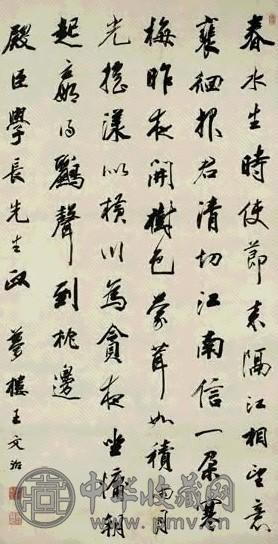 春水生時使節來隔江相望意
裵徊報君清切江南信一朵寒
梅昨夜開樹色蒙茸如積雨月
光搖漾似橫川為貪夜坐慵朝
起贏得鸝聲到枕邊
殿臣學長先生政 夢樓王文治
中华收藏网